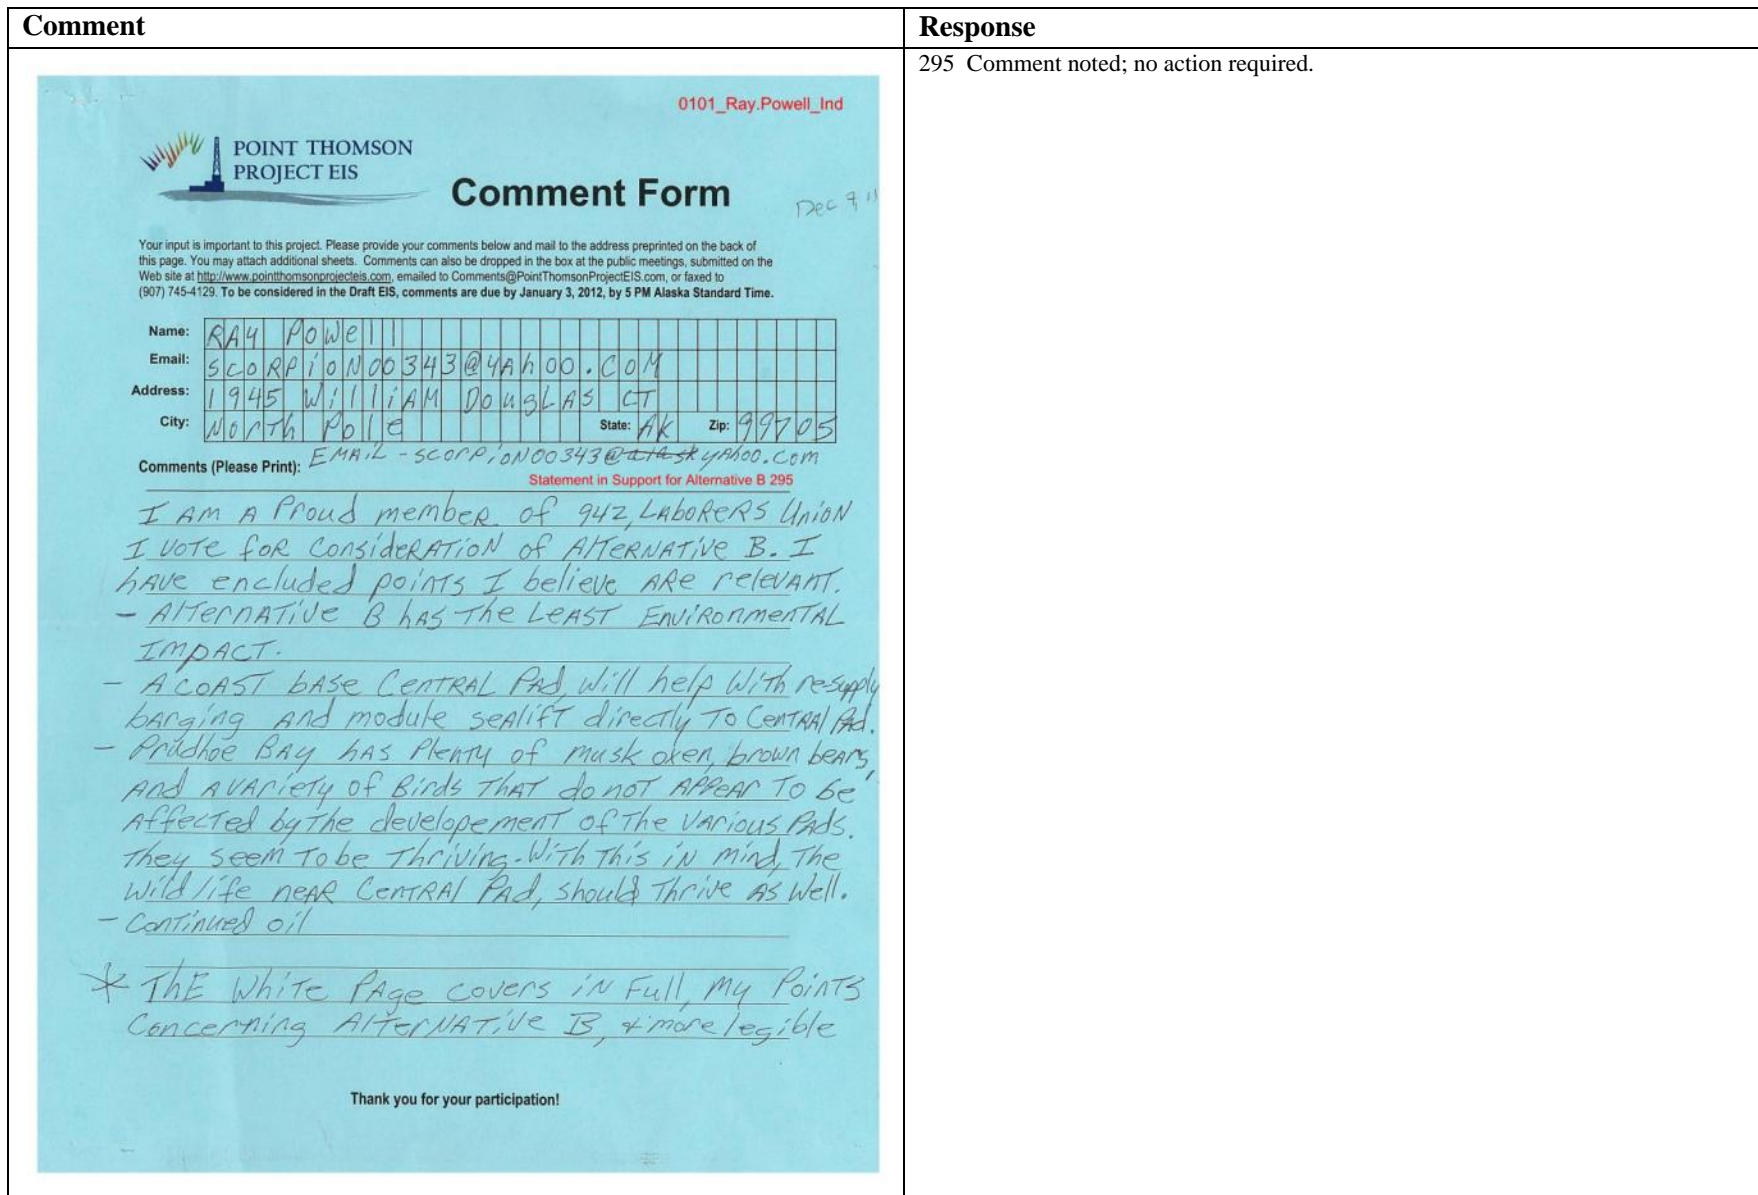 Comment
Response
295 Comment noted; no action required.
0101_Ray.Powell_Ind
POINT THOMSON
PROJECT EIS
Comment Form
Dec 9, 11
Your input is important to this project. Please provide your comments below and mail to the address preprinted on the back of
this page. You may attach additional sheets. Comments can also be dropped in the box at the public meetings, submitted on the
Web site at http://www.pointthomsonprojecteis.com, emailed to Comments@PointThomsonProjectEIS.com, or faxed to
(907) 745-4129. To be considered in the Draft EIS, comments are due by January 3, 2012, by 5 PM Alaska Standard Time.
Name: RAY Powell
Email: scoRpioN00343@YAhoo.COM
Address: 1945 WilliAM DougLAS CT
City: North Pole State: AK Zip: 99705
Comments (Please Print): EMAiL - scorpioN00343@alask yAhoo.com
Statement in Support for Alternative B 295
I AM A Proud member of 942, LABORERS UNiON
I VOTE foR ConsideRATioN of AlTeRNATive B. I
hAve encluded poinTs I believe ARe relevANT.
- AlTernATive B hAs The LeAST EnviRonmenTAL
IMPACT.
- A COAST bAse CenTRAL PAd, will help With re-supply
barging And module seAlifT directly To CenTRAl PAd.
- Prudhoe BAy hAs PlenTy of musk oxen, brown beArs,
And A vArieTy of Birds ThAT do noT AppeAr To be
Affected by The developemenT of The VArious PAds.
They seem To be Thriving. WiTh This iN mind, The
wildlife neAR CenTRAl PAd, should Thrive As Well.
- ConTinued oil
* ThE WhiTe PAge covers iN Full, my PoinTs
Concerning AlTerNATive B, & more legible
Thank you for your participation!